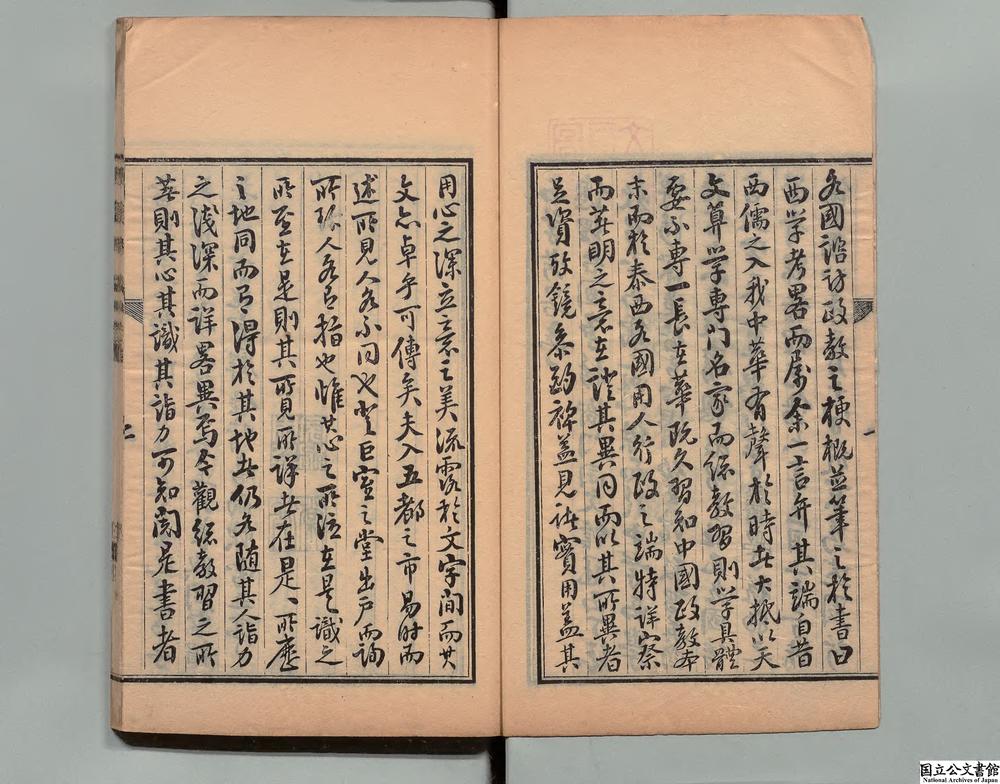 各國諮訪政教之梗概並筆之於書曰
西學考畧而屬余一言弁其端自昔
西儒之入我中華有聲於時者大抵以天
文算學專門名家而總教習則學具體
要不專一長在華既久習知中國政教本
末而於泰西各國用人行政之端特詳察
而著明之意在證其異同而以其所異者
足資攷鏡參酌裨益見諸實用蓋其
一
用心之深立意之美流露於文字間而其
文亦卓乎可傳矣夫入五都之市易時而
述所見人各不同也登巨室之堂出戶而詢
所歷人各有指也惟其心之所注在是識之
所至在是則其所見所詳者在是所歷
之地同而有得於其地者仍各隨其人詣力
之淺深而詳畧異焉今觀總教習之所
著則其心其識其詣力可知閱是書者
二
国立公文書館
National Archives of Japan